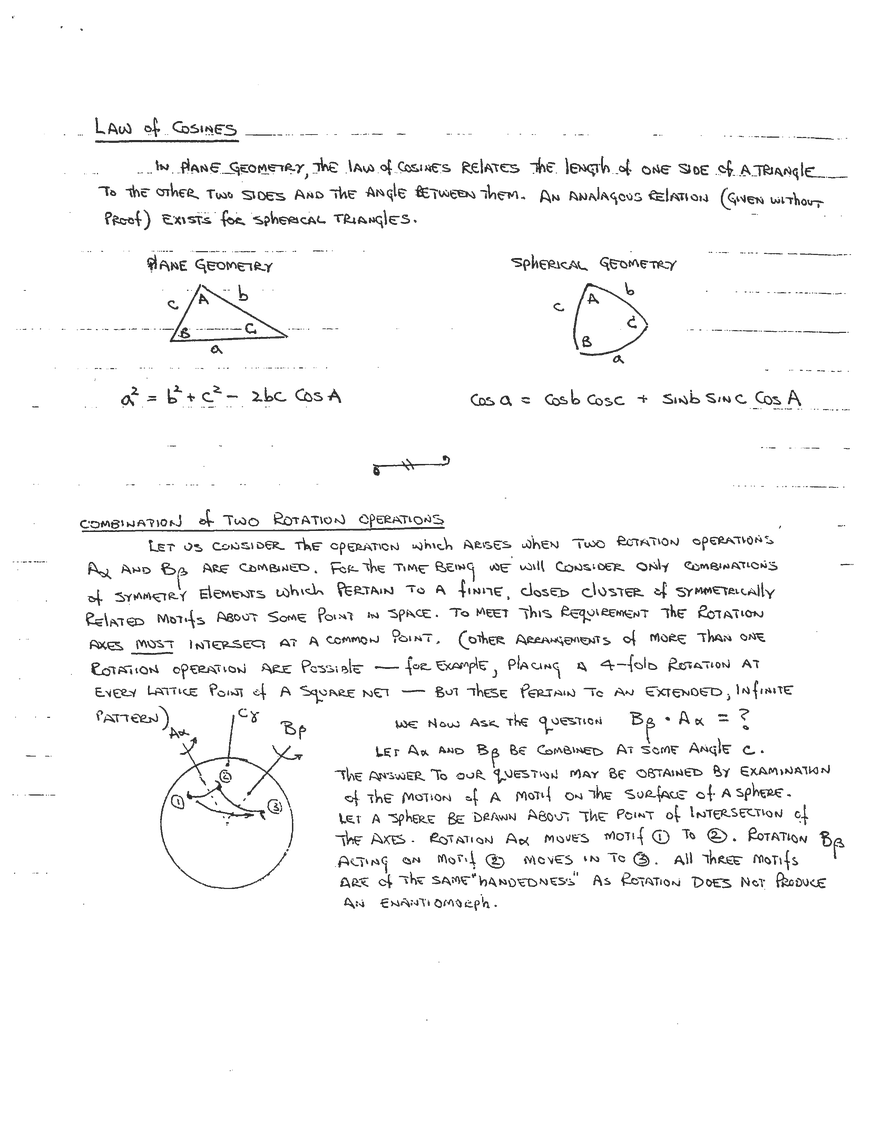 LAW of COSINES
IN PLANE GEOMETRY, THE LAW of COSINES RELATES THE LENGTH of ONE SIDE of A TRIANGLE
TO THE OTHER TWO SIDES AND THE ANGLE BETWEEN THEM. AN ANALAGOUS RELATION (GIVEN WITHOUT
PROOF) EXISTS FOR SPHERICAL TRIANGLES.
PLANE GEOMETRY
SPHERICAL GEOMETRY
c A b
B C
a
c A b
C
B
a
a² = b² + c² - 2bc COS A
COS a = COS b COS c + SIN b SIN c COS A
COMBINATION of TWO ROTATION OPERATIONS
LET US CONSIDER THE OPERATION WHICH ARISES WHEN TWO ROTATION OPERATIONS
Aα AND Bβ ARE COMBINED. FOR THE TIME BEING WE WILL CONSIDER ONLY COMBINATIONS
of SYMMETRY ELEMENTS WHICH PERTAIN TO A FINITE, CLOSED CLUSTER of SYMMETRICALLY
RELATED MOTIFS ABOUT SOME POINT IN SPACE. TO MEET THIS REQUIREMENT THE ROTATION
AXES MUST INTERSECT AT A COMMON POINT. (OTHER ARRANGEMENTS of MORE THAN ONE
ROTATION OPERATION ARE POSSIBLE — FOR EXAMPLE, PLACING A 4-FOLD ROTATION AT
EVERY LATTICE POINT of A SQUARE NET — BUT THESE PERTAIN TO AN EXTENDED, INFINITE
PATTERN)
WE NOW ASK THE QUESTION Bβ · Aα = ?
LET Aα AND Bβ BE COMBINED AT SOME ANGLE c.
THE ANSWER TO OUR QUESTION MAY BE OBTAINED BY EXAMINATION
of THE MOTION of A MOTIF ON THE SURFACE of A SPHERE.
LET A SPHERE BE DRAWN ABOUT THE POINT of INTERSECTION of
THE AXES. ROTATION Aα MOVES MOTIF ① TO ②. ROTATION Bβ
ACTING ON MOTIF ② MOVES IN TO ③. ALL THREE MOTIFS
ARE of THE SAME "HANDEDNESS" AS ROTATION DOES NOT PRODUCE
AN ENANTIOMORPH.
Aα
Cγ
Bβ
①
②
③